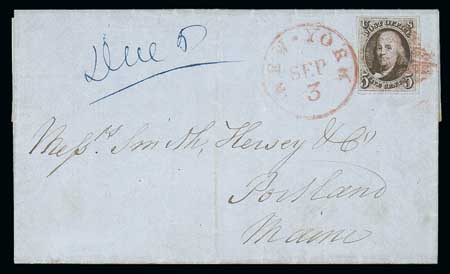 Due 5
NEW-YORK
SEP
3
POST OFFICE
5 FIVE CENTS 5
Messrs. Smith, Hersey & Co
Portland
Maine